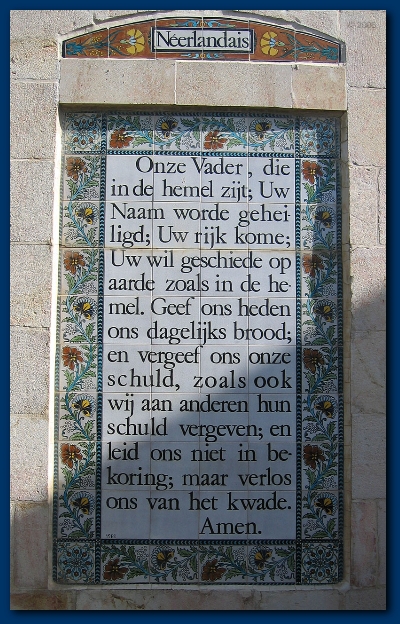 © 2005
Néerlandais
Onze Vader, die
in de hemel zijt; Uw
Naam worde gehei-
ligd; Uw rijk kome;
Uw wil geschiede op
aarde zoals in de he-
mel. Geef ons heden
ons dagelijks brood;
en vergeef ons onze
schuld, zoals ook
wij aan anderen hun
schuld vergeven; en
leid ons niet in be-
koring; maar verlos
ons van het kwade.
Amen.